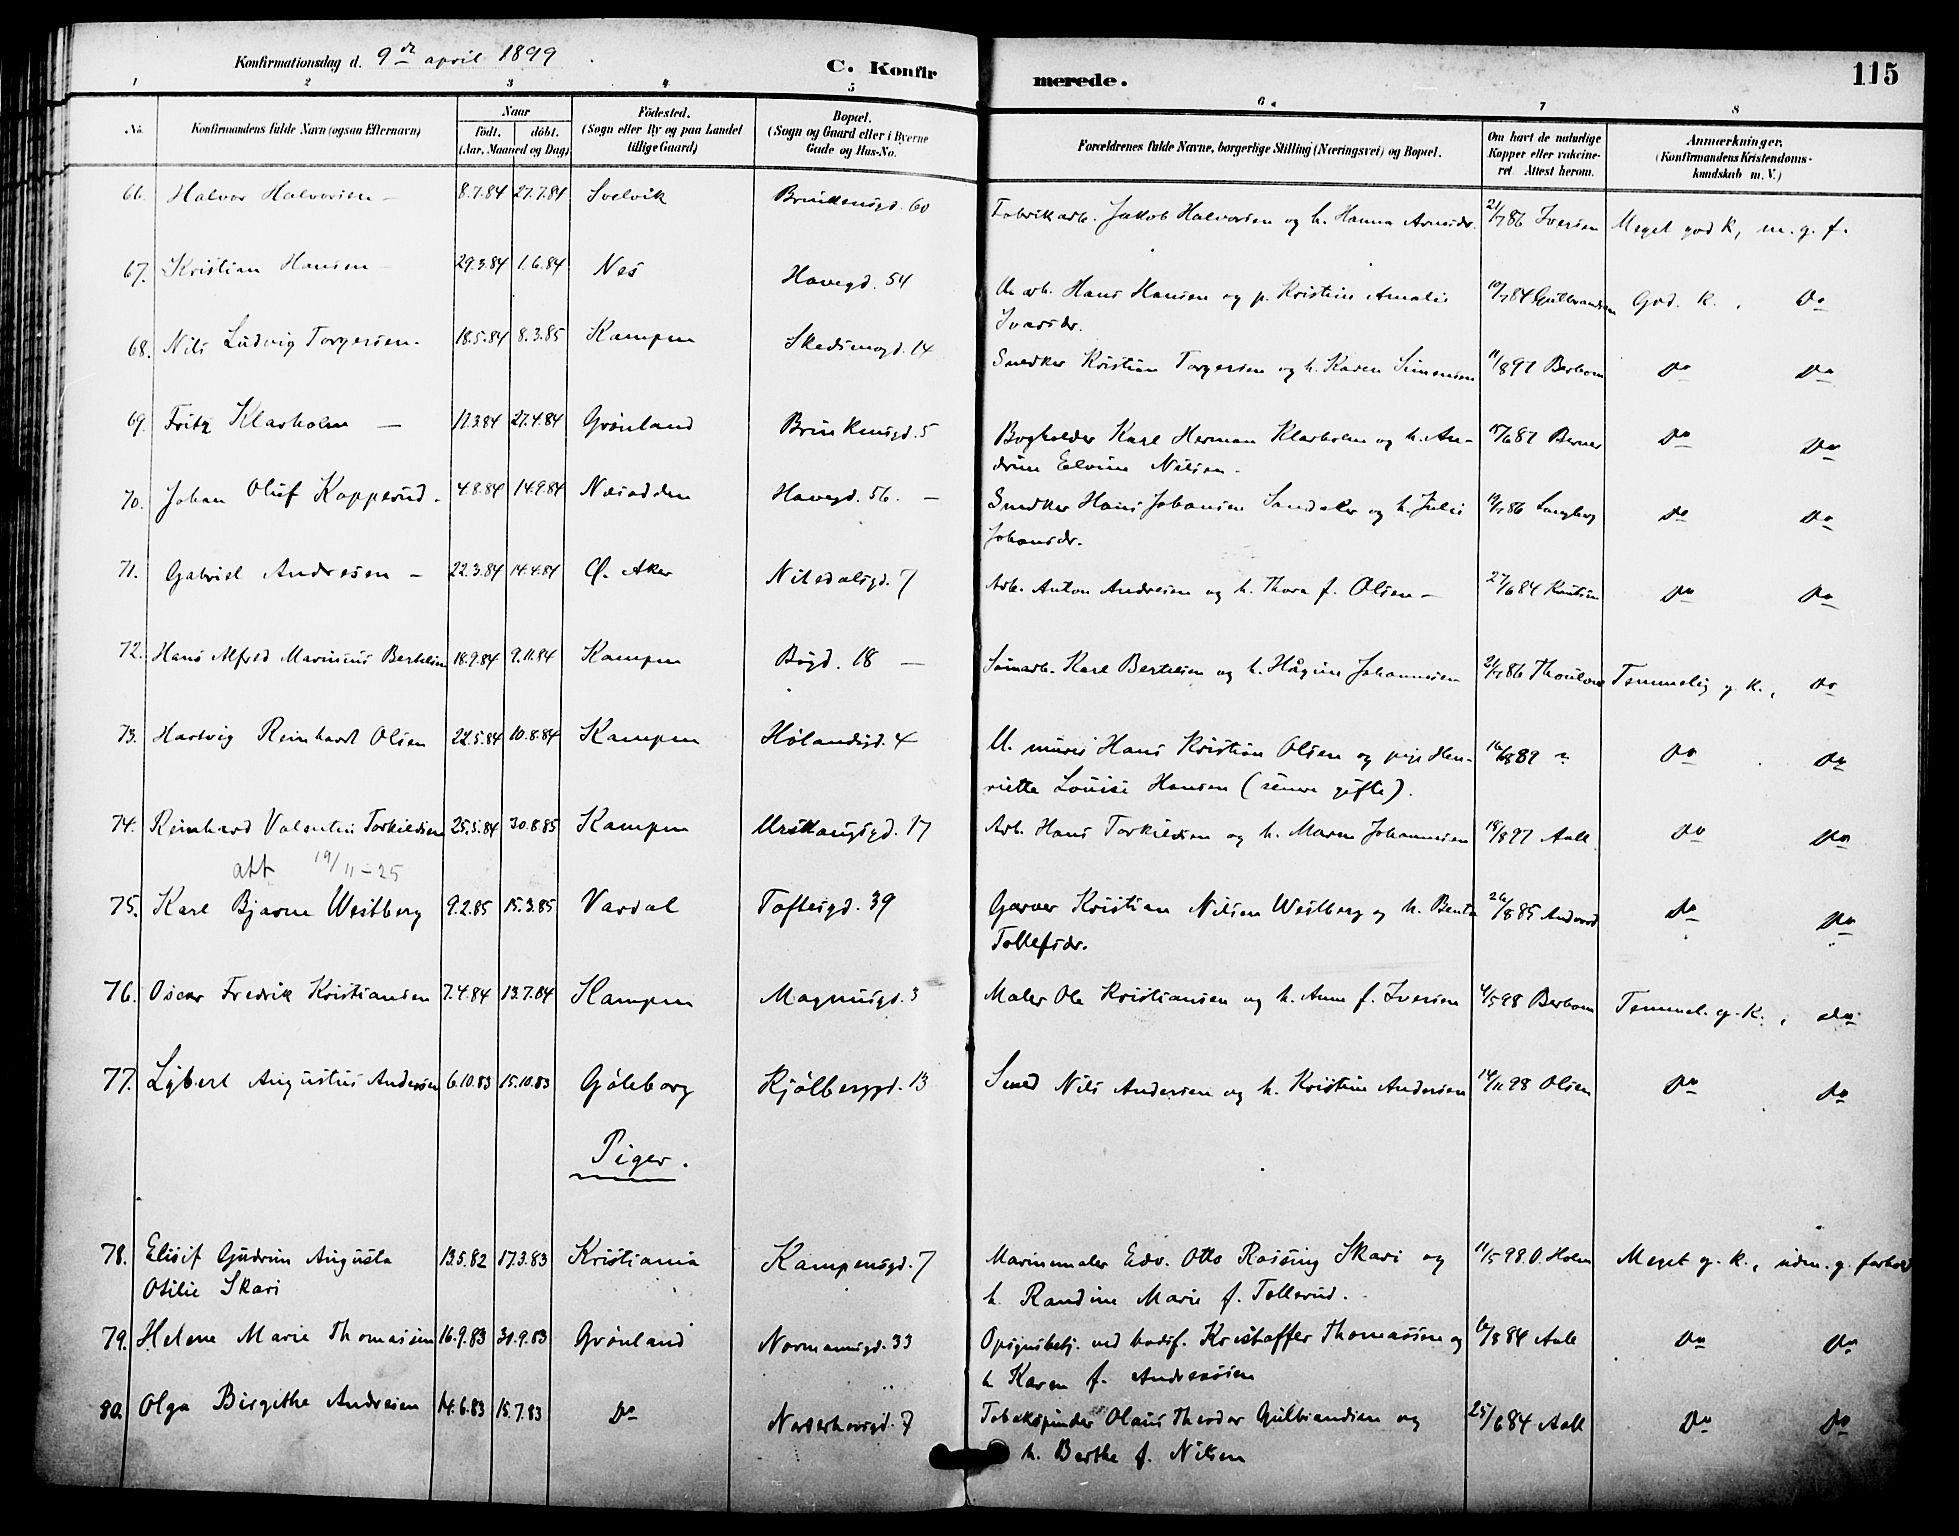 Konfirmationsdag d. 9de april 1899
C. Konfirmerede.
115
1 2 3 4 5 6a 7 8
No. Konfirmandens fulde Navn (ogsaa Efternavn) Naar født. døbt. (Aar, Maaned og Dag) Fødested. (Sogn eller By og paa Landet tillige Gaard) Bopæl. (Sogn og Gaard eller i Byerne Gade og Hus-No. Forældrenes fulde Navne, borgerlige Stilling (Næringsvei) og Bopæl. Om havt de naturlige Kopper eller vakcineret. Attest herom. Anmærkninger. (Konfirmandens Kristendomskundskab m. V.)
66. Halvor Halvorsen – 8.7.84 27.7.84 Svelvik Brinkensgd. 60 Fabrikarb. Jakob Halvorsen og h. Hanna Arnesdr. 21/7 86 Iversen Meget god k, m. g. f.
67. Kristian Hansen – 29.3.84 1.6.84 Nes Havegd. 54 arb. Hans Hansen og p. Kristine Amalie
Ivarsdr. 10/7 84 Gulbrandsen God. k., Do
68. Nils Ludvig Torgersen – 18.5.84 8.3.85 Kampen Skedsmogd. 14 Snedker Kristian Torgersen og h. Karen Simensen 11/8 97 Berbom Do Do
69. Fritz Klarholm – 17.3.84 27.4.84 Grønland Brinkensgd. 5 Bogholder Karl Herman Klarholm og h. An-
drine Elvine Nilsen – 87 Berner Do Do
70. Johan Oluf Kopperud – 4.8.84 14.9.84 Næsodden Havegd. 56. – Snedker Hans Johansen Sandaker og h. Julie
Johansdr. 86 Langberg Do Do
71. Gabriel Andresen – 22.3.84 14.4.84 Ø. Aker Nitedalsgd. 7 Arb. Anton Andresen og h. Thora f. Olsen – 27/6 84 Knutsen Do Do
72. Hans Alfred Marinius Bertelsen 18.9.84 9.11.84 Kampen Bøgd. 18 – Karl Bertelsen og h. Hågine Johannesen 21/7 86 Temmelig g. k., Do
73. Hartvig Reinhardt Olsen 22.5.84 10.8.84 Kampen Hølandsgd. 4 U. murer Hans Kristian Olsen og pige Hen-
riette Louise Hansen (senere gifte). 16/8 89 Do Do
74. Reinhard Valentin Torkildsen 25.5.84 30.8.85 Kampen Urskougsgd. 17 Arb. Hans Torkildsen og h. Maren Johannesen 18/8 97 Aall Do Do
att 19/11–25
75. Karl Bjarne Westberg 9.2.85 15.3.85 Vardal Toftesgd. 39 Garver Kristian Nilsen Westberg og h. Bente
Tollefsdr. 26/8 85 Andvord Do Do
76. Oscar Fredrik Kristiansen 7.4.84 13.7.84 Kampen Magnusgd. 3 Maler Ole Kristiansen og h. Anne f. Iversen 4/5 98 Berbom Temmel. g. k., Do
77. Lybert Augustus Andersen 6.10.83 15.10.83 Gøteborg Kjølberggd. 13 Smed Nils Andersen og h. Kristine Andersen 14/11 98 Olsen Do Do
Piger.
78. Elisif Gudrun Augusta
Otilie Skari 13.5.82 17.3.83 Kristiania Kampensgd. 7 Marinemaler Edv. Otto Rossing Skari og
h. Randine Marie f. Tollerud. 11/5 98. O. Holm Meget g. k., udm. g. forhold
79. Helene Marie Thomassen 16.9.83 30.9.83 Grønland Normannsgd. 33 Opsynsbetj. ved bodsf. Kristoffer Thomassen og
h. Karen f. Andreassen 84 Aall Do Do
80. Olga Birgithe Andresen 14.6.83 15.7.83 Do Norderhovsgd. 7 Tobakspinder Olaus Theodor Gulbrandsen og
h. Berthe f. Nilsen 25/6 84 Aall Do Do